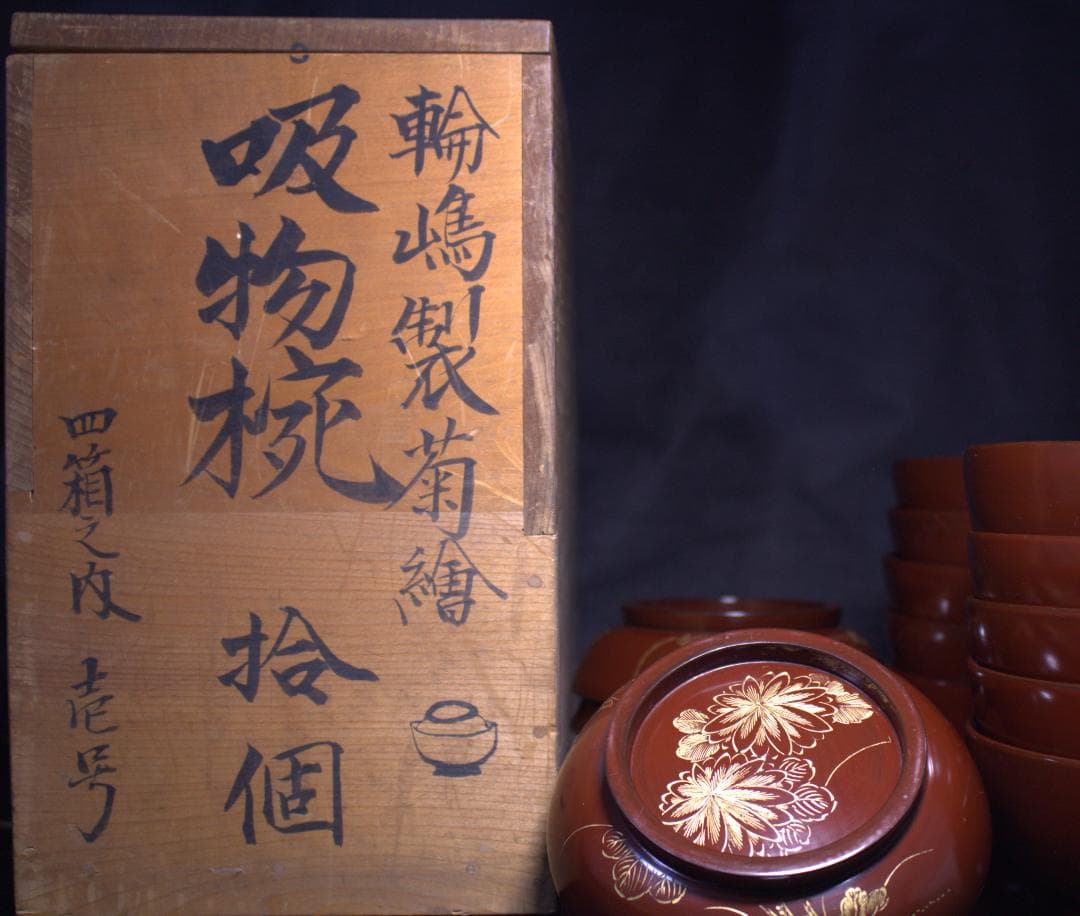 輪嶋製菊繪
吸物椀 拾個
四箱之内 壱号